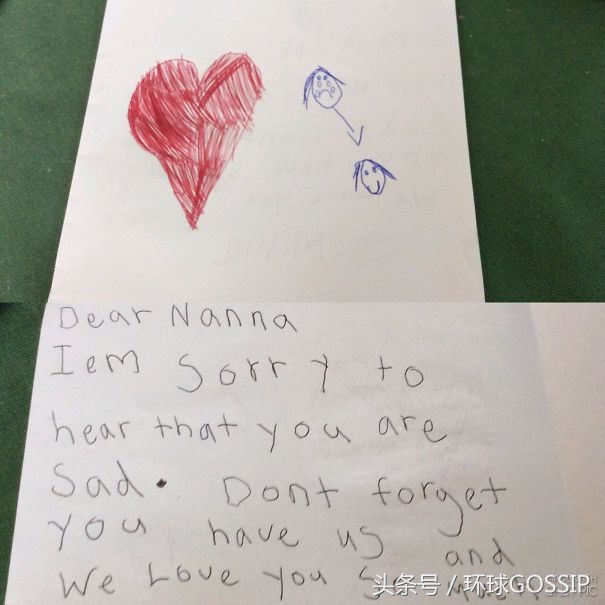 Dear Nanna
I em sorry to
hear that you are
sad. Dont forget
you have us and
We Love you so
头条号 / 环球GOSSIP